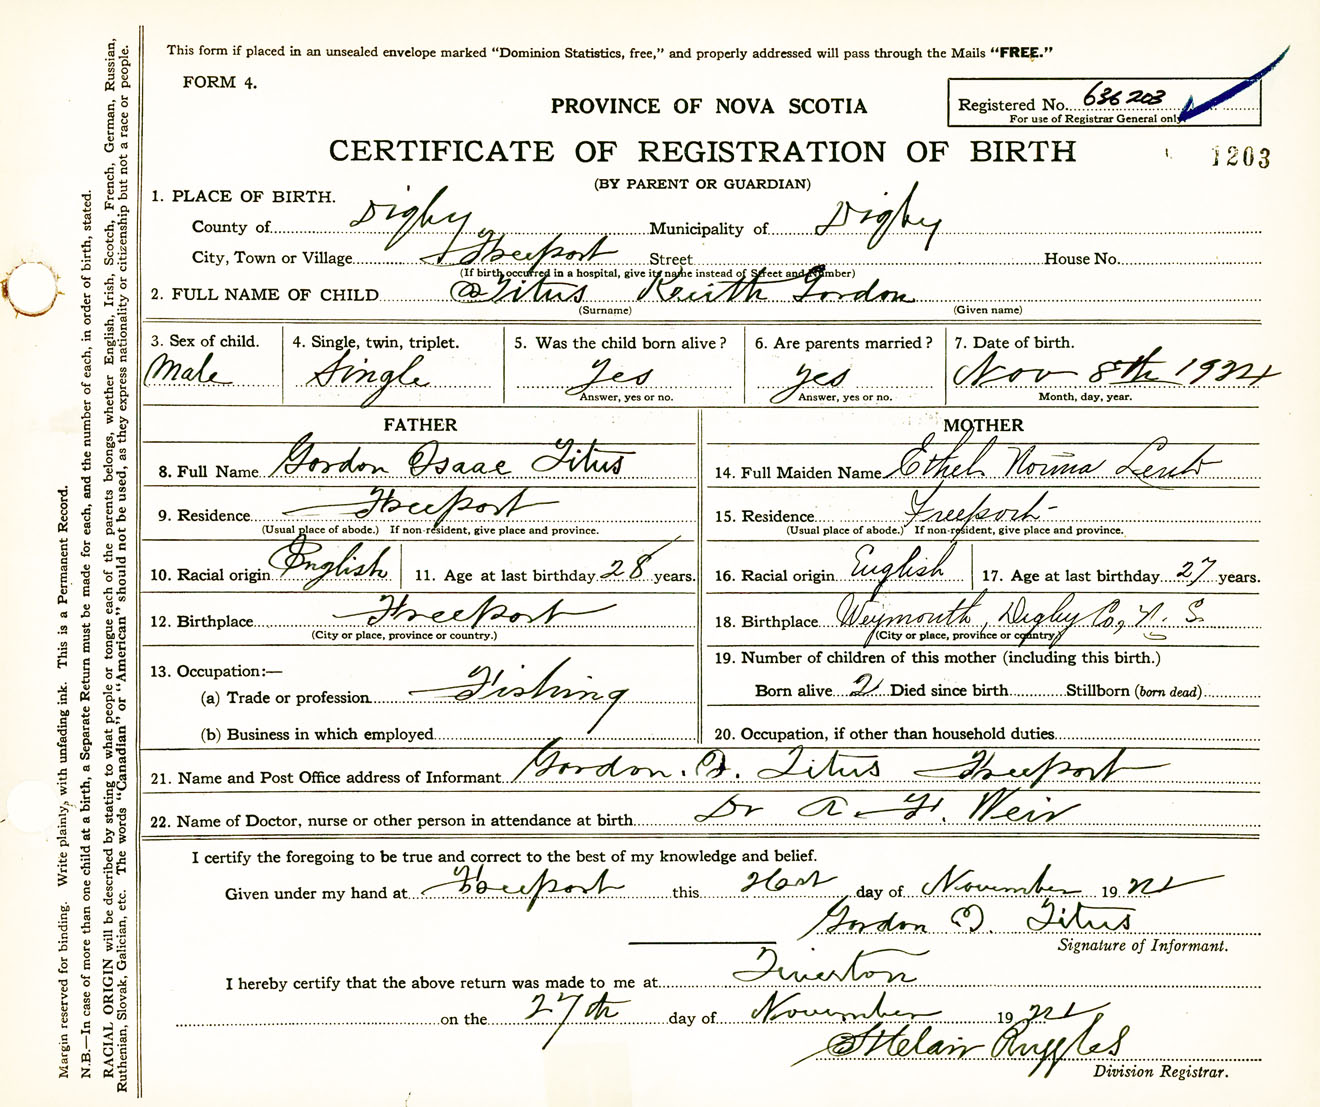 This form if placed in an unsealed envelope marked “Dominion Statistics, free,” and properly addressed will pass through the Mails “FREE.”
FORM 4.
PROVINCE OF NOVA SCOTIA
Registered No. 636203
For use of Registrar General only
CERTIFICATE OF REGISTRATION OF BIRTH
1203
(BY PARENT OR GUARDIAN)
1. PLACE OF BIRTH.
County of Digby Municipality of Digby
City, Town or Village Freeport Street House No.
(If birth occurred in a hospital, give its name instead of Street and Number)
2. FULL NAME OF CHILD Titus Keith Gordon
(Surname) (Given name)
3. Sex of child. 4. Single, twin, triplet. 5. Was the child born alive? 6. Are parents married? 7. Date of birth.
Male Single Yes yes Nov 8th 1924
Answer, yes or no. Answer, yes or no. Month, day, year.
FATHER
8. Full Name Gordon Isaac Titus
9. Residence Freeport
(Usual place of abode.) If non-resident, give place and province.
10. Racial origin English 11. Age at last birthday 28 years.
12. Birthplace Freeport
(City or place, province or country.)
13. Occupation:—
(a) Trade or profession Fishing
(b) Business in which employed
MOTHER
14. Full Maiden Name Ethel Norma Lent
15. Residence Freeport
(Usual place of abode.) If non-resident, give place and province.
16. Racial origin English 17. Age at last birthday 27 years.
18. Birthplace Weymouth, Digby Co, N. S.
(City or place, province or country)
19. Number of children of this mother (including this birth.)
Born alive 2 Died since birth Stillborn (born dead)
20. Occupation, if other than household duties
21. Name and Post Office address of Informant Gordon. I. Titus Freeport
22. Name of Doctor, nurse or other person in attendance at birth Dr Weir
I certify the foregoing to be true and correct to the best of my knowledge and belief.
Given under my hand at Freeport this day of November 1924
Gordon I. Titus
Signature of Informant.
I hereby certify that the above return was made to me at Tiverton
on the 27th day of November 1924
Ruggles
Division Registrar.
Margin reserved for binding. Write plainly, with unfading ink. This is a Permanent Record.
N.B.—In case of more than one child at a birth, a Separate Return must be made for each, and the number of each, in order of birth, stated.
RACIAL ORIGIN will be described by stating to what people or tongue each of the parents belongs, whether English, Irish, Scotch, French, German, Russian,
Ruthenian, Slovak, Galician, etc. The words “Canadian” or “American” should not be used, as they express nationality or citizenship but not a race or people.